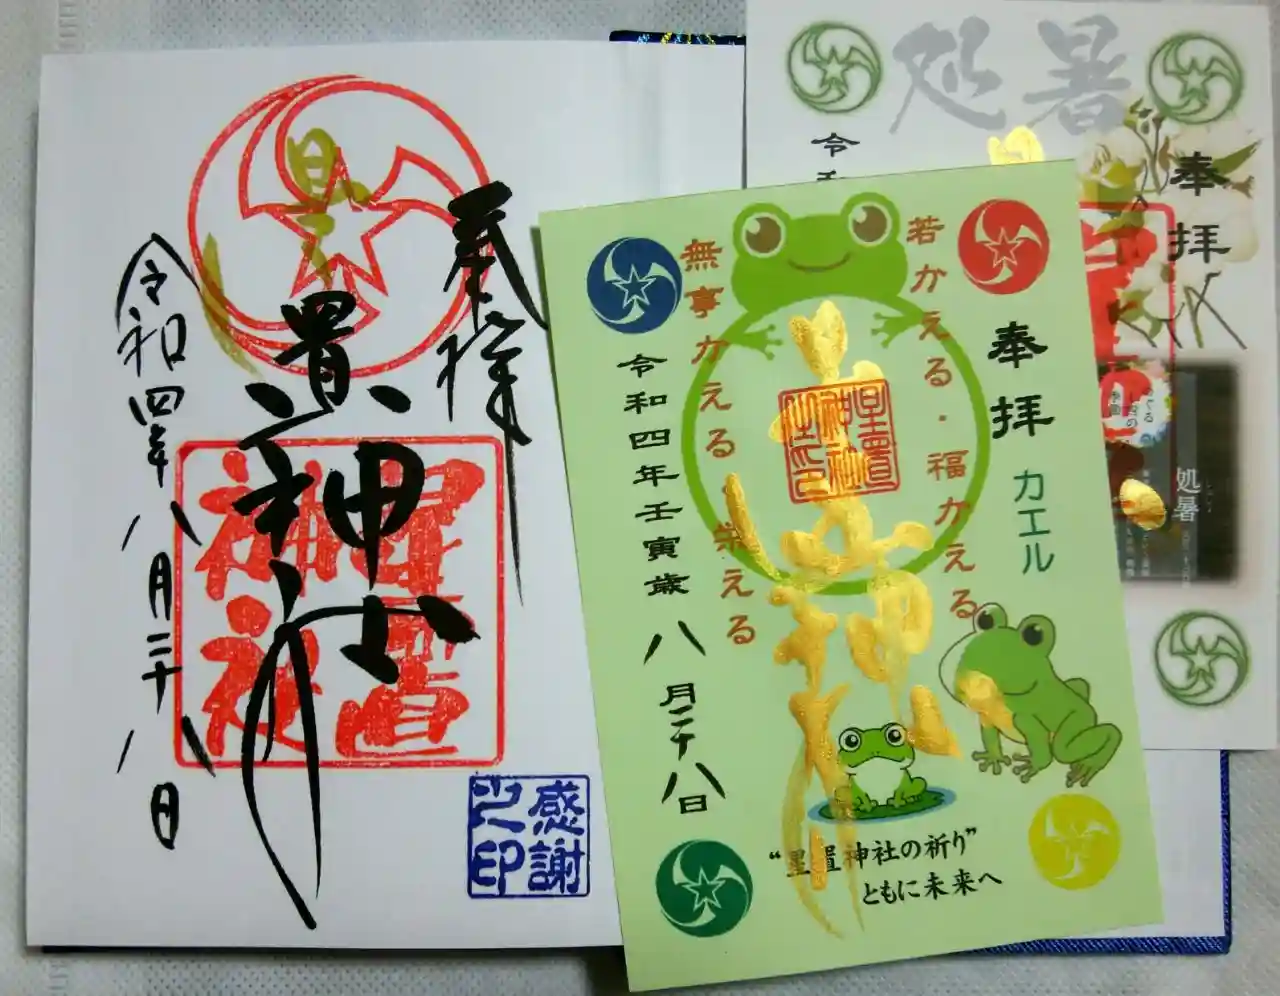 奉拝
星置神社
令和四年八月二十八日
星置神社
感謝之印
若かえる・福かえる
無事かえる・栄える
奉拝
カエル
星置神社
星置神社之印
令和四年壬寅歳八月二十八日
“星置神社の祈り”
ともに未来へ
処暑
奉拝
令和
処暑